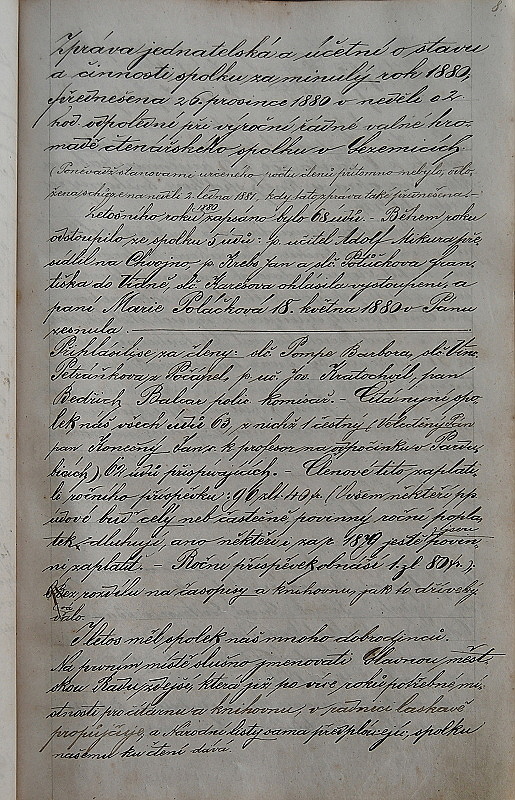 8.
Zpráva jednatelská a účetní o stavu
a činnosti spolku za minulý rok 1880,
přednešena 26. prosince 1880 v neděli o 2
hod. odpolední při výroční řádné valné hro-
madě čtenářského spolku v Sezemicích.
(Poněvadž stanovami určeného počtu členů přítomno nebylo, odlo-
žena schůze na neděli 2. ledna 1881, kdy tato zpráva také přednešena.)
Letošního roku 1880 zapsáno bylo 68 údů. – Během roku
odstoupilo ze spolku 5 údů: p. učitel Adolf Mikura pře-
sídlel na Chvojno, p. Krebs Jan a slč. Poláčkova Fran-
tiška do Vídně, slč. Karešova ohlásila vystoupení, a
paní Marie Poláčková 18. května 1880 v Pánu
zesnula.
Přihlásili se za členy: slč. Pompe Barbora, slč. Vinc.
Petráňkova z Počápel, p. uč. Jos. Kratochvíl, pan
Bedřich Balcar polic. komisař. – Čítá nyní spo-
lek náš všech údů 63, z nichž 1 čestný (Velectěný Pan
pan Konečný Jan c. k. professor na odpočinku v Pardu-
bicích), 62 údů přispívajících. – Členové tito zaplati-
li ročního příspěvku: 96 zl. 40 kr. (Ovšem někteří pp.
údové buď celý neb částečně povinný roční popla-
tek dluhují, ano někteří i za r. 1879 ještě jsou povin-
ni zaplatit. – Roční příspěvek obnáší 1 zl. 80 kr.),
bez rozdílu na časopisy a knihovnu, jak to dříve bý-
valo.
I letos měl spolek náš mnoho dobrodinců.
Na prvním místě slušno jmenovati Slavnou měst-
skou Radu zdejší, která již po více roků potřebné mí-
stnosti pro čítárnu a knihovnu, v radnici laskavě
propůjčuje, a Národní listy sama předplácejíc, spolku
našemu ku čtení dává.